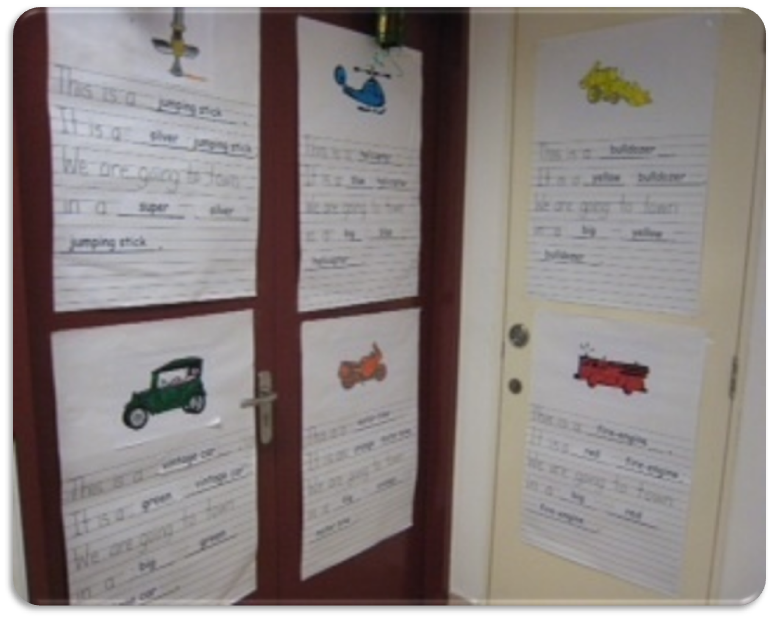 This is a jumping stick.
It is a silver jumping stick
We are going to town
in a super silver
jumping stick.
This is a helicopter
It is a blue helicopter
We are going to town
in a big blue
helicopter
This is a bulldozer
It is a yellow bulldozer
We are going to town
in a big yellow
bulldozer
This is a vintage car
It is a green vintage car
We are going to town
in a big green
car
This is a
It is an orange
We are going to town
in a big orange
This is a fire-engine
It is a red fire-engine
We are going to town
in a big red
fire-engine